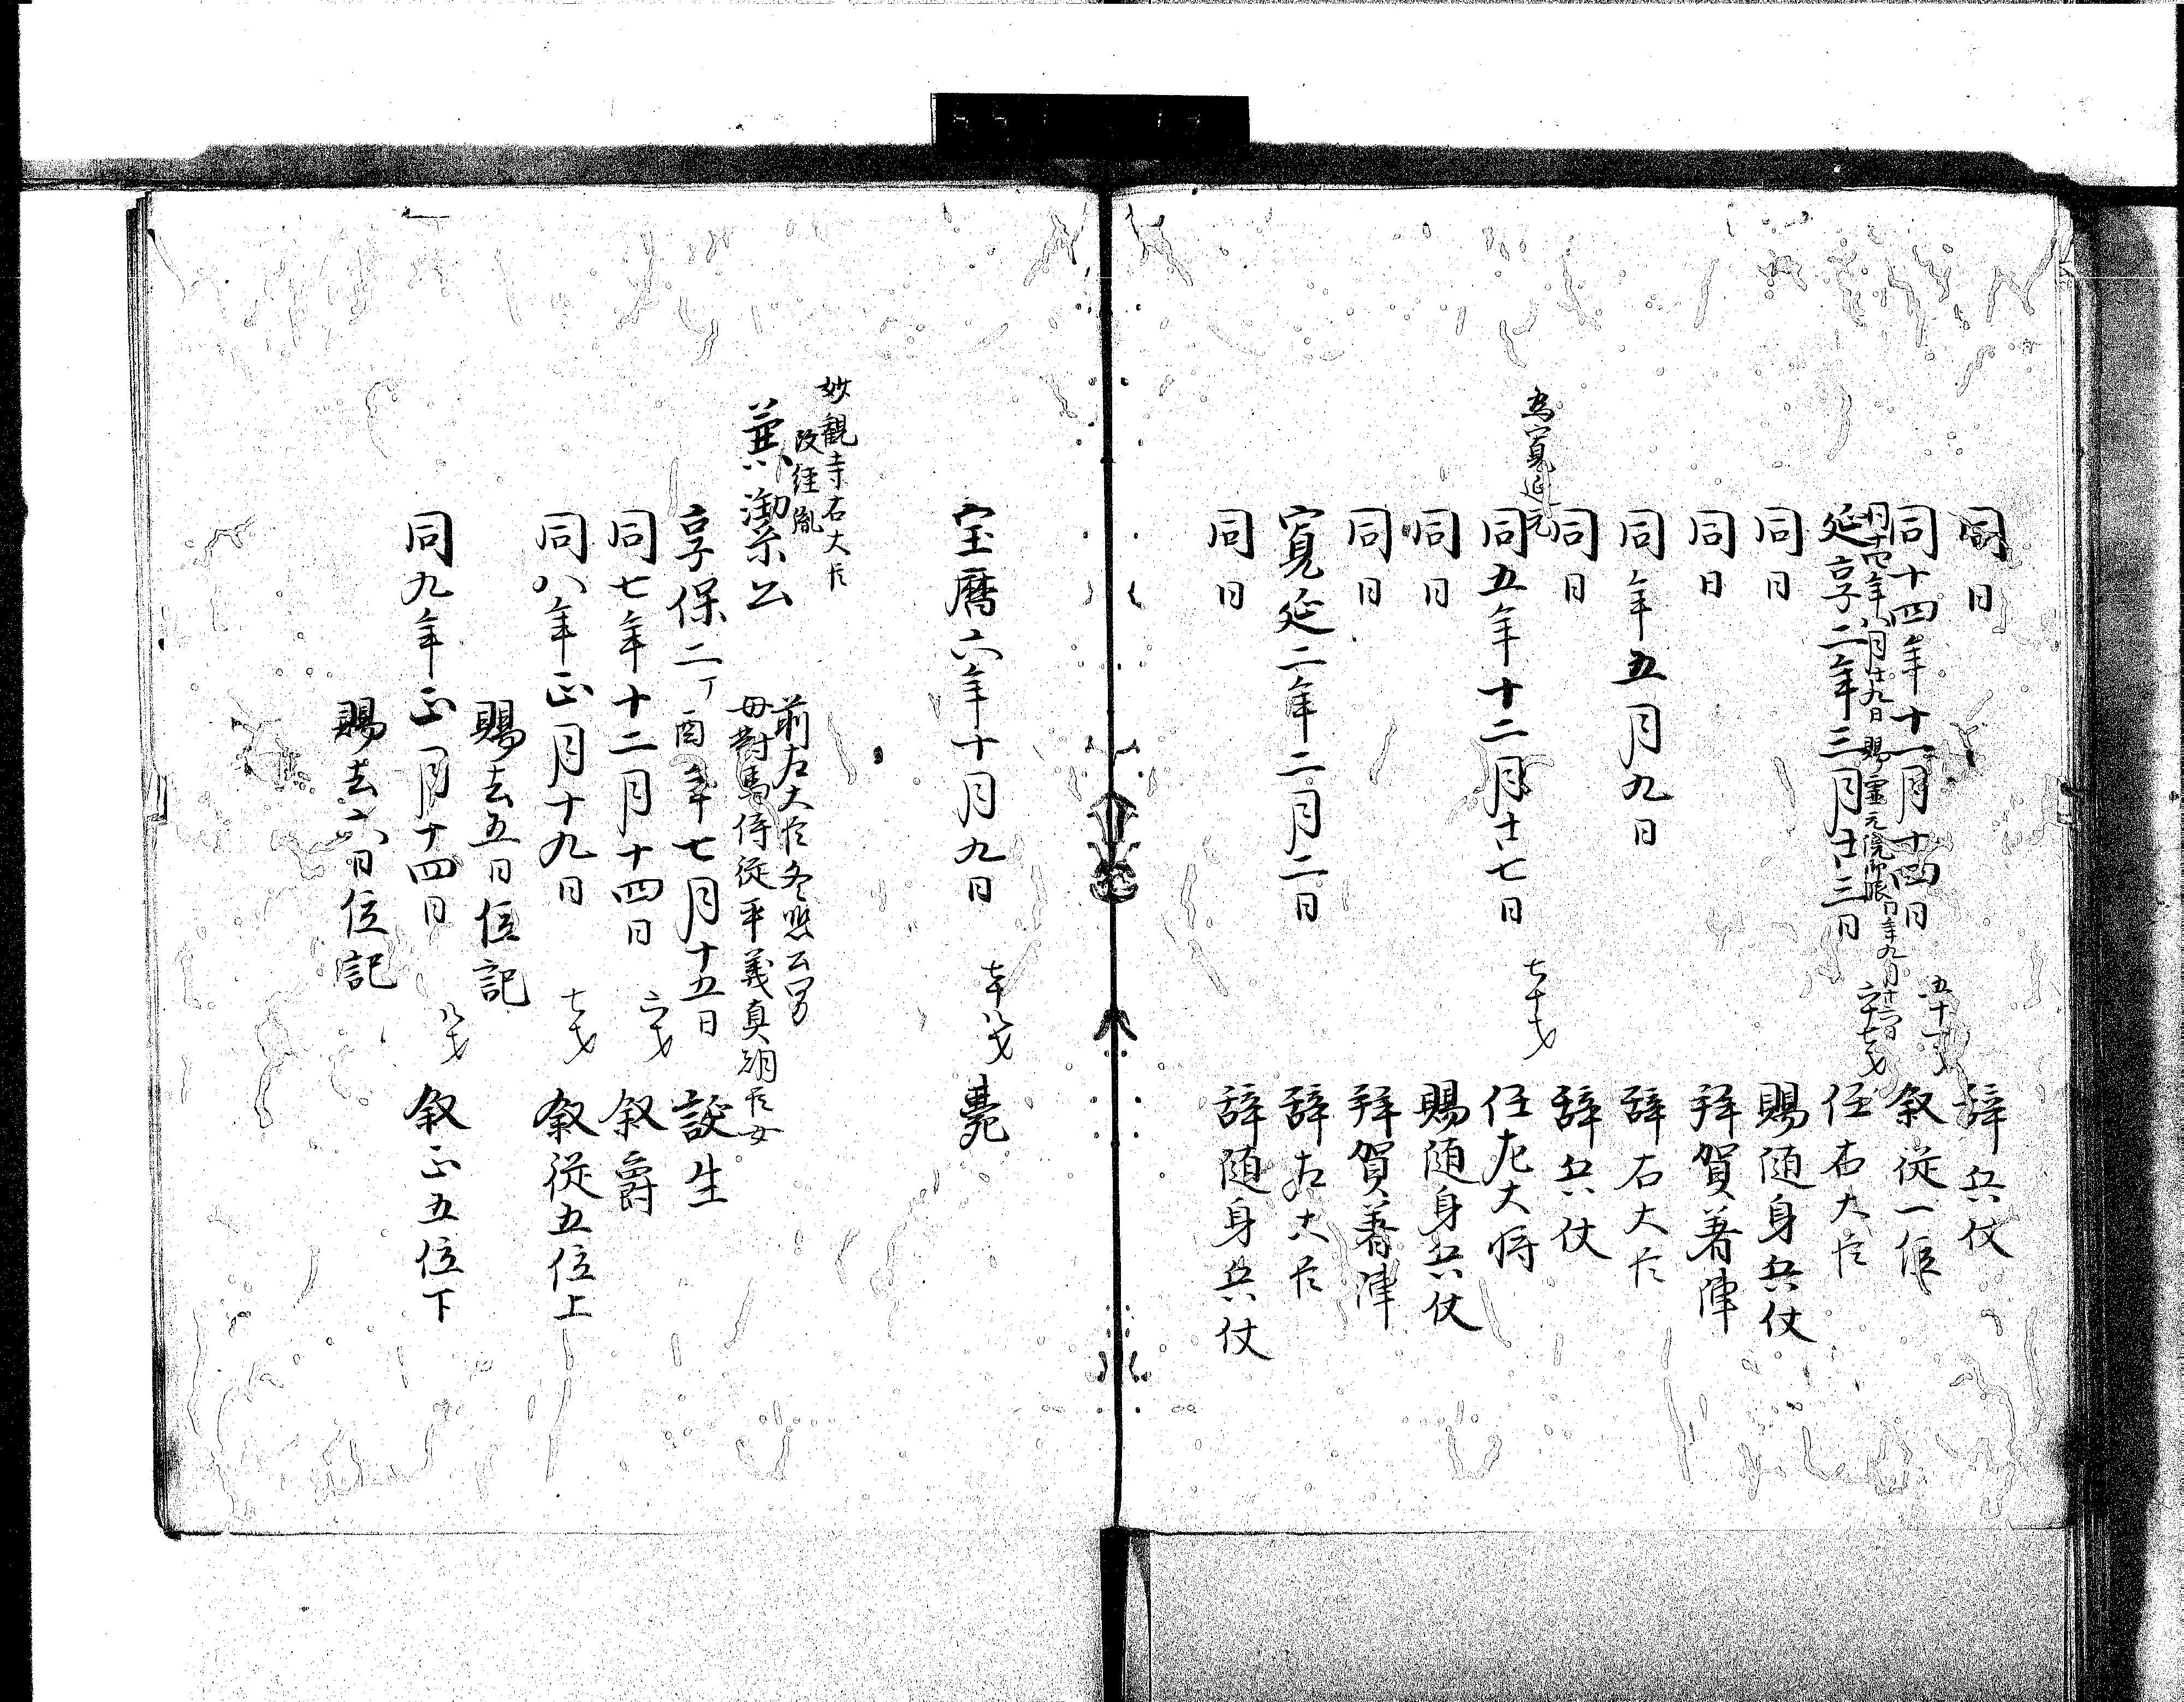 同日　辞兵仗
同十四年十一月十四日　五十一才　叙従一位
同十四年八月廿九日　賜霊元院御服　同年九月十二日
延享二年三月廿三日　六十七才　任右大臣
同日　賜随身兵仗
同日　拜賀著陣
同年五月九日　辞右大臣
同日　辞兵仗
為寛延元
同五年十二月廿七日　七十才　任左大将
同日　賜随身兵仗
同日　拜賀著陣
寛延二年二月二日　辞左大臣
同日　辞随身兵仗
宝暦六年十月九日　七十八才　薨
妙観寺右大臣
改経胤
兼潔公　前左大臣冬熙公男
母対馬侍従平義真朝臣女
享保二丁酉年七月十五日　誕生
同七年十二月十四日　六才　叙爵
同八年正月十九日　七才　叙従五位上
賜去五日位記
同九年正月十四日　八才　叙正五位下
賜去六日位記